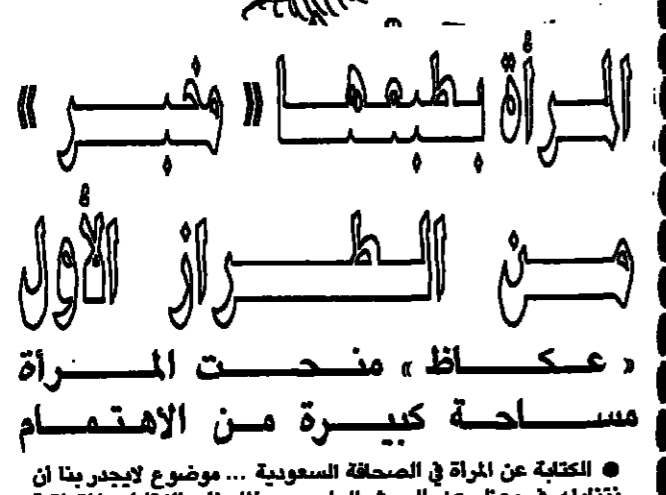 المرأة بطبعها « مخبر »
من الطراز الأول
« عكاظ » منحت المرأة
مساحة كبيرة من الاهتمام
● الكتابة عن المرأة في الصحافة السعودية ... موضوع لايجدر بنا ان